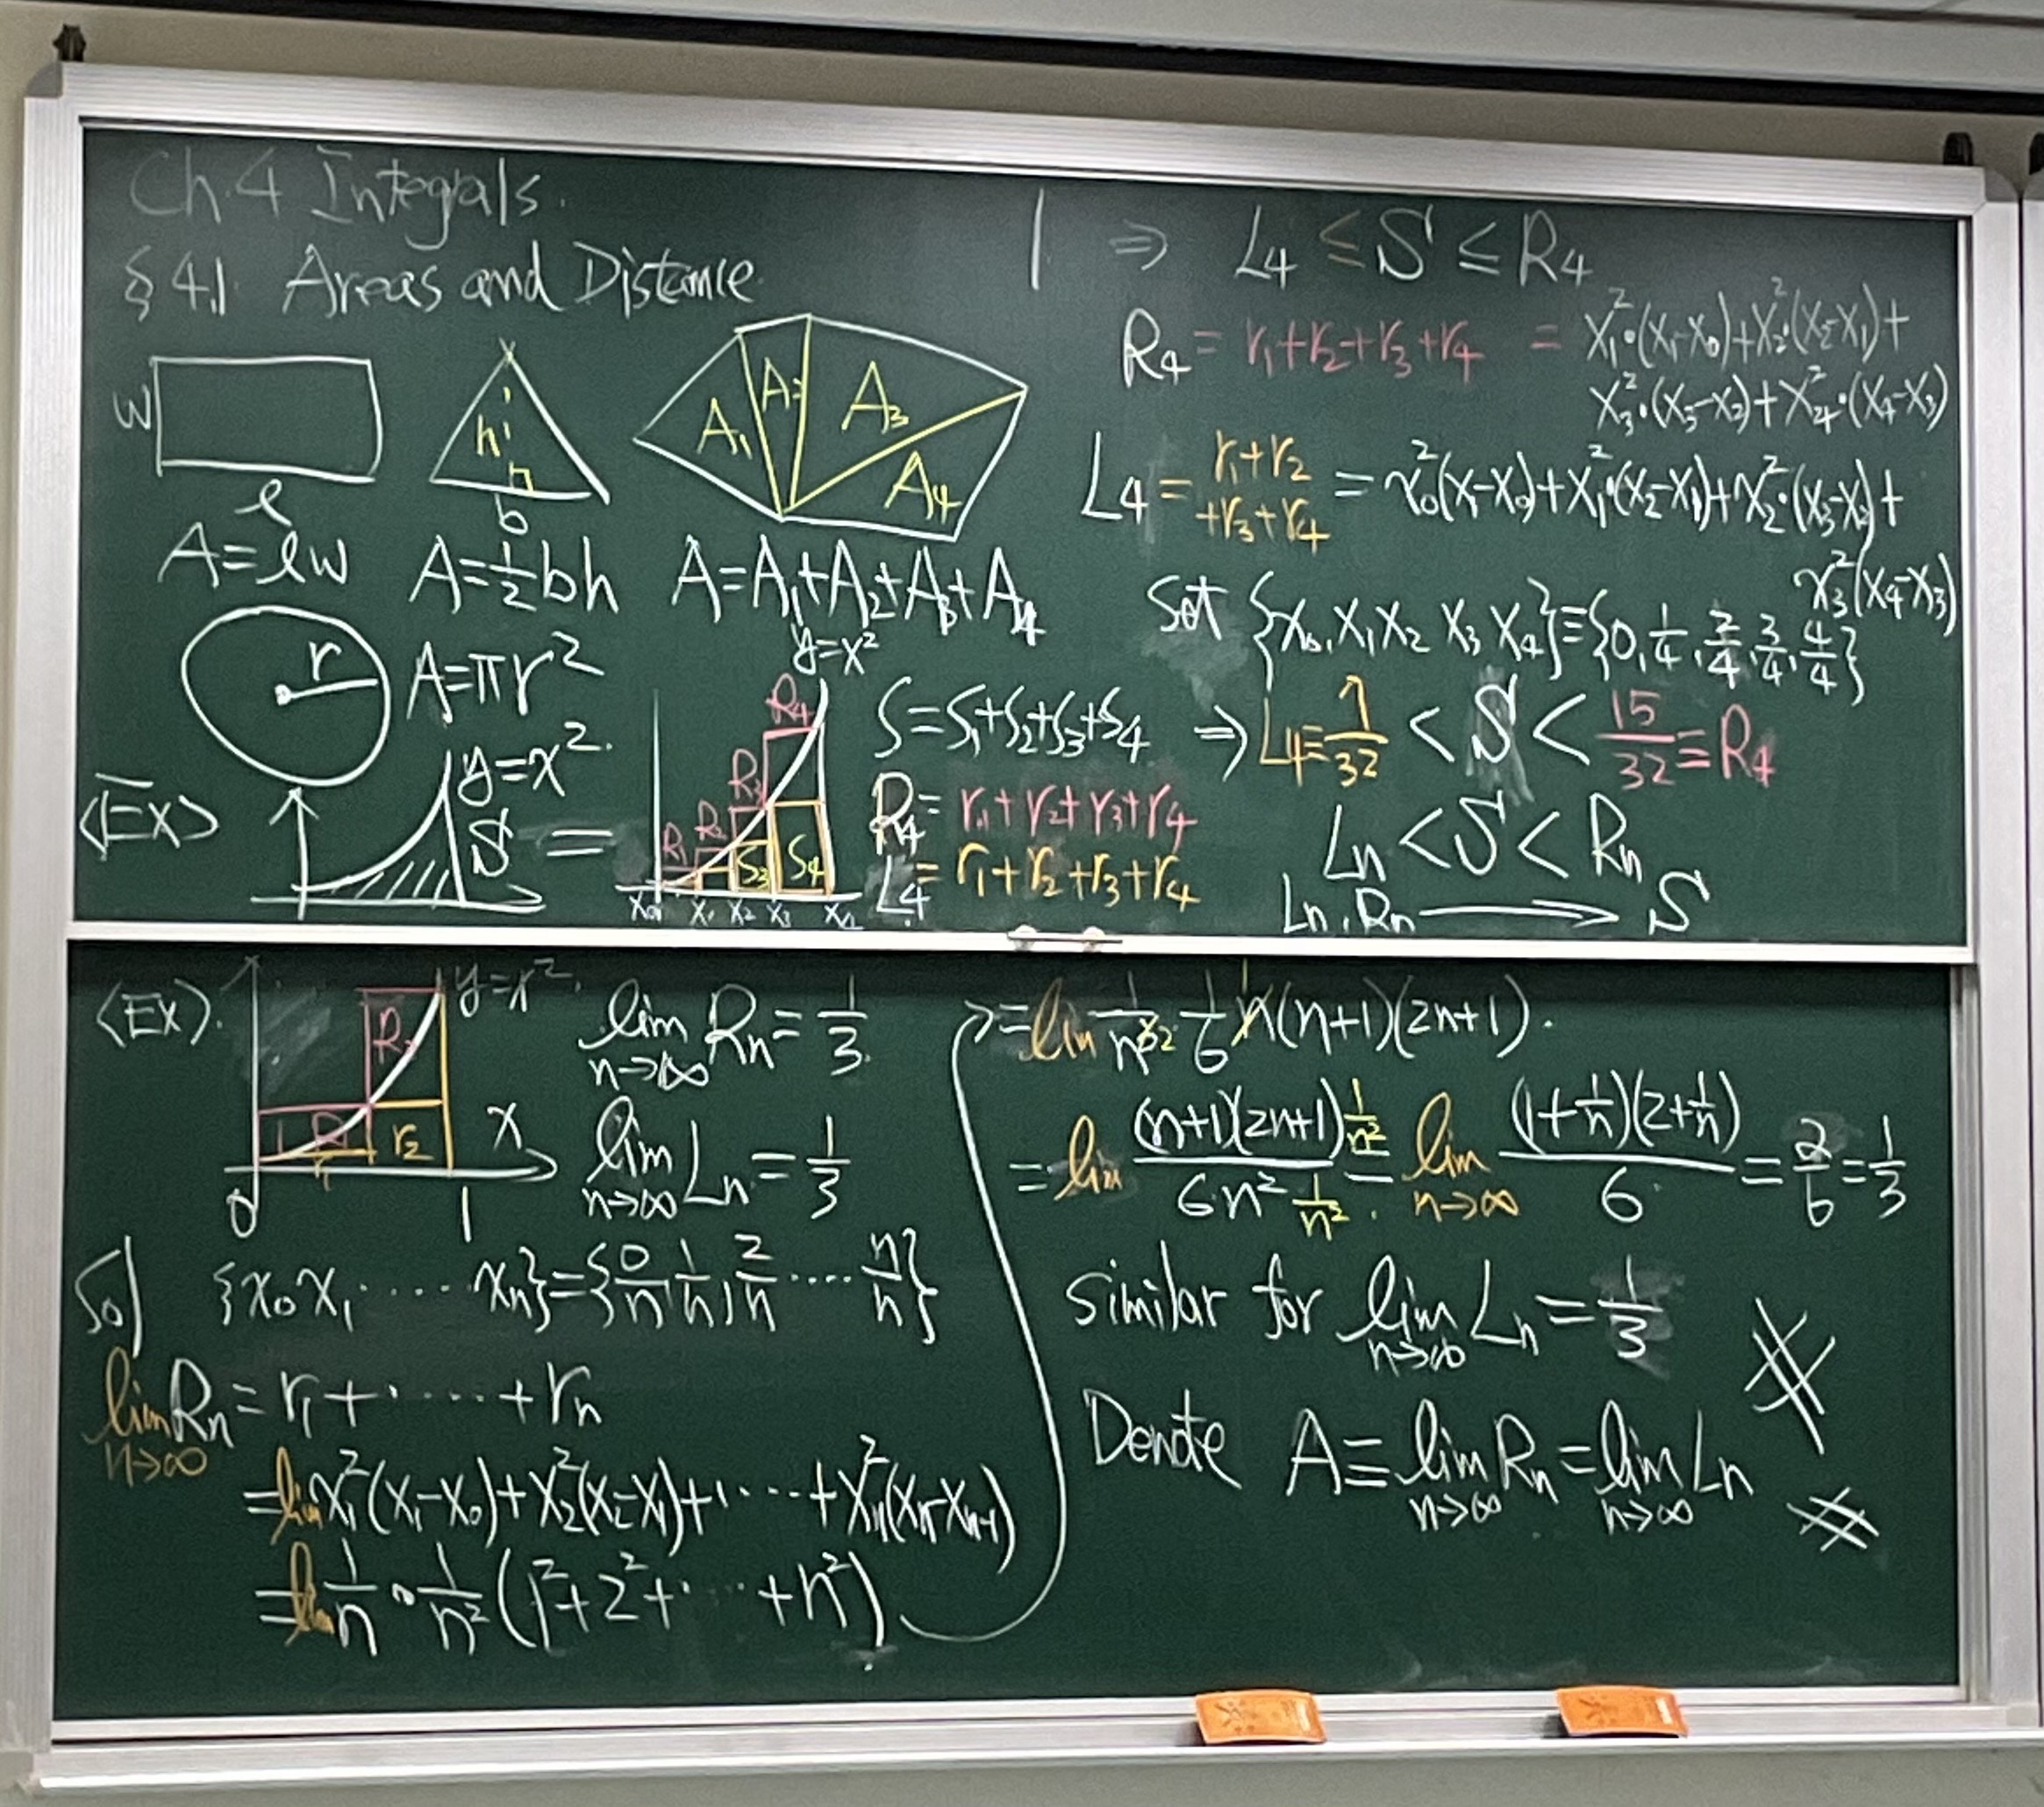 Ch.4 Integrals.
§ 4.1 Areas and Distance
w
l
A=lw
h
b
A=½bh
A₁ A₂ A₃ A₄
A=A₁+A₂+A₃+A₄
r
A=πr²
<Ex>
y=x².
S =
y=x²
R₁ R₂ R₃ R₄
S₃ S₄
x₀ x₁ x₂ x₃ x₄
S=S₁+S₂+S₃+S₄
R₄= r₁+r₂+r₃+r₄
L₄= r₁+r₂+r₃+r₄
⇒ L₄ ≤ S ≤ R₄
R₄ = r₁+r₂+r₃+r₄ = x₁²·(x₁-x₀)+x₂²·(x₂-x₁)+
x₃²·(x₃-x₂)+x₄²·(x₄-x₃)
L₄ = r₁+r₂+r₃+r₄ = x₀²(x₁-x₀)+x₁²·(x₂-x₁)+x₂²·(x₃-x₂)+
x₃²(x₄-x₃)
Set {x₀,x₁ x₂ x₃ x₄}≡{0,1/4,2/4,3/4,4/4}
⇒ L₄≡7/32 < S < 15/32≡R₄
Ln < S < Rn
Ln,Rn ⟶ S
<Ex>.
y=x².
R₂
r₂
x
0
1
lim n→∞ Rn = 1/3.
lim n→∞ Ln = 1/3
Sol
{x₀ x₁ ····· xn}={0/n,1/n,2/n ···· n/n}
lim n→∞ Rn = r₁+·····+rn
=lim x₁²(x₁-x₀)+x₂²(x₂-x₁)+·····+xn²(xn-xn-1)
=lim 1/n · 1/n² (1²+2²+····+n²)
=lim 1/n³² · 1/6 n(n+1)(2n+1).
=lim (n+1)(2n+1) 1/n² / 6n² 1/n² = lim n→∞ (1+1/n)(2+1/n) / 6 = 2/6 = 1/3
Similar for lim n→∞ Ln = 1/3
Denote A≡lim n→∞ Rn = lim n→∞ Ln